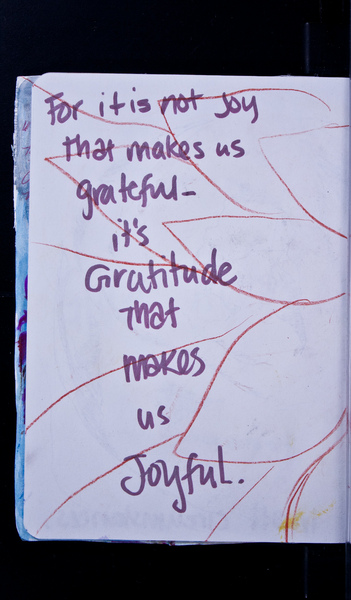 For it is not Joy
That makes us
grateful-
it's
Gratitude
That
makes
us
Joyful.